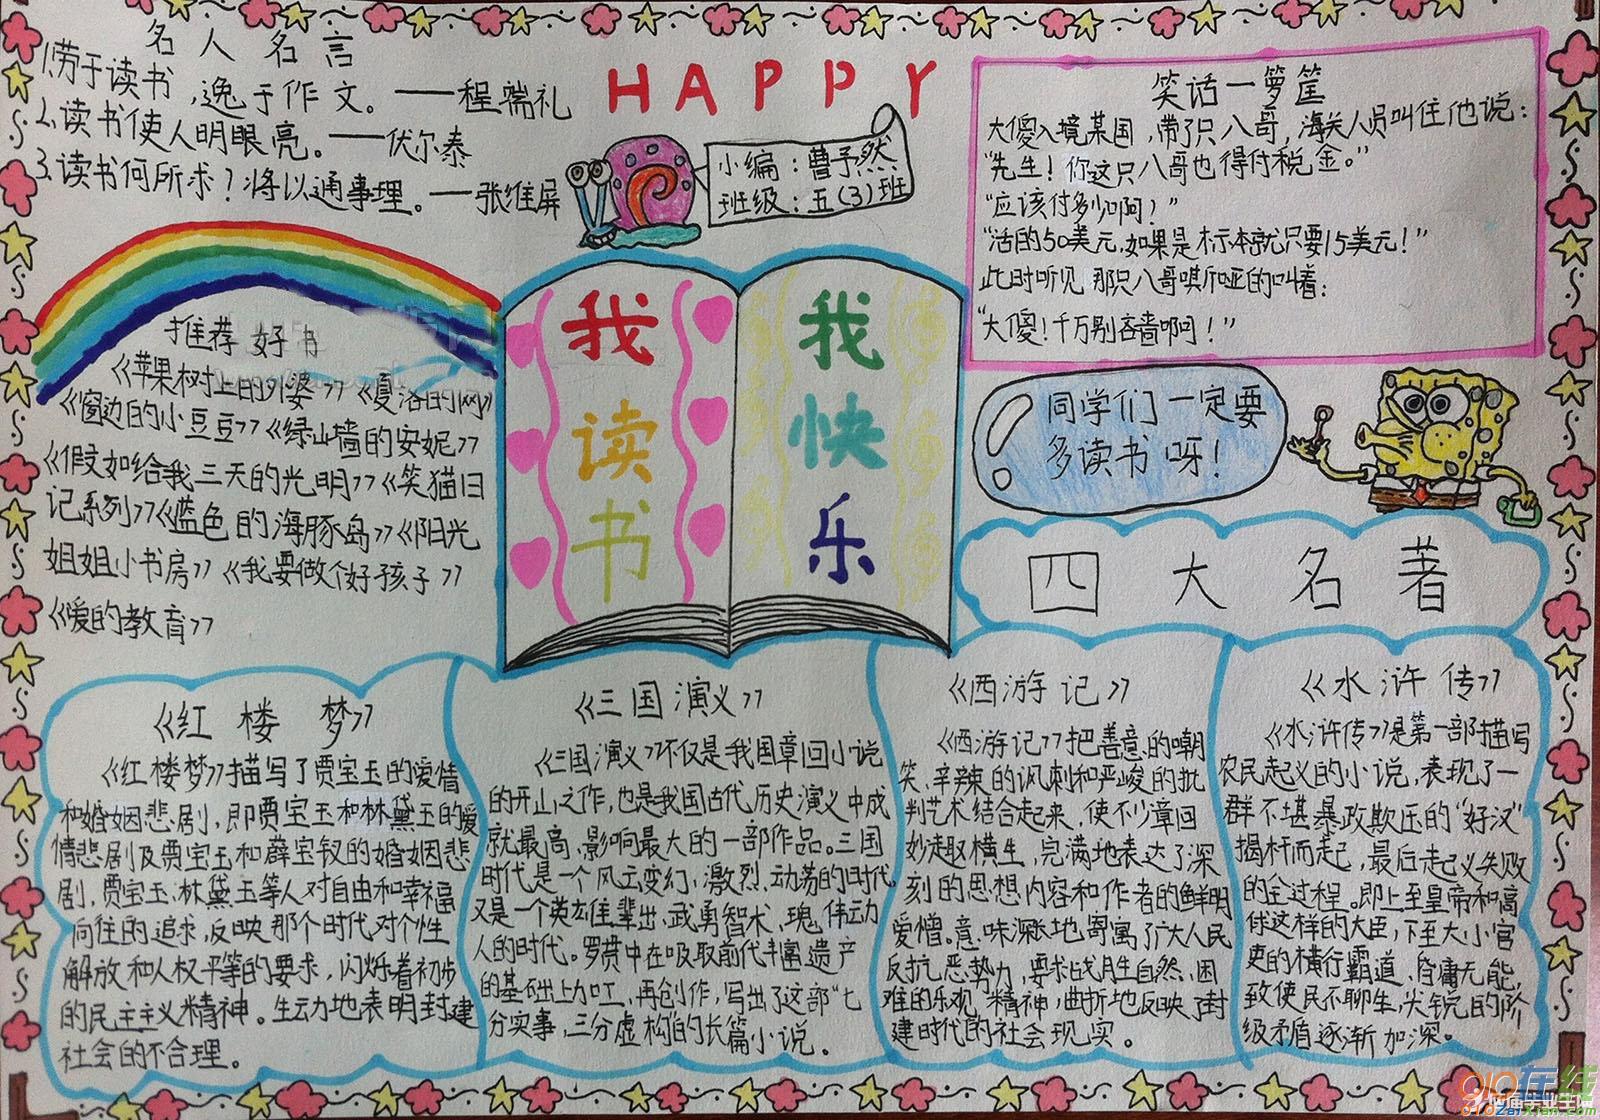 名人名言
1.劳于读书,逸于作文。——程端礼
2.读书使人明眼亮。——伏尔泰
3.读书何所求?将以通事理。——张维屏
HAPPY
小编:曹予然
班级:五(3)班
笑话一箩筐
大傻入境某国,带了只八哥,海关人员叫住他说:
“先生!你这只八哥也得付税金。”
“应该付多少啊?”
“活的50美元,如果是标本就只要15美元!”
此时听见那只八哥嘶哑的叫着:
“大傻!千万别吝啬啊!”
推荐好书
《苹果树上的外婆》《夏洛的网》
《窗边的小豆豆》《绿山墙的安妮》
《假如给我三天的光明》《笑猫日
记系列》《蓝色的海豚岛》《阳光
姐姐小书房》《我要做个好孩子》
《爱的教育》
我读书
我快乐
同学们一定要
多读书呀!
四大名著
《红楼梦》
《红楼梦》描写了贾宝玉的爱情
和婚姻悲剧,即贾宝玉和林黛玉的爱
情悲剧及贾宝玉和薛宝钗的婚姻悲
剧,贾宝玉、林黛玉等人对自由和幸福
向往的追求,反映那个时代对个性
解放和人权平等的要求,闪烁着初步
的民主主义精神。生动地表明封建
社会的不合理。
《三国演义》
《三国演义》不仅是我国章回小说
的开山之作,也是我国古代历史演义中成
就最高,影响最大的一部作品。三国
时代是一个风云变幻,激烈、动荡的时代
又是一个英雄辈出、武勇智术、瑰伟动
人的时代。罗贯中在吸取前代丰富遗产
的基础上加工、再创作,写出了这部“七
分实事,三分虚构”的长篇小说。
《西游记》
《西游记》把善意的嘲
笑、辛辣的讽刺和严峻的批
判艺术结合起来,使不少章回
妙趣横生,完满地表达了深
刻的思想内容和作者的鲜明
爱憎。意味深长地寄寓了广大人民
反抗恶势力,要求战胜自然、困
难的乐观精神,曲折地反映了封
建时代的社会现实。
《水浒传》
《水浒传》是第一部描写
农民起义的小说,表现了一
群不堪暴政欺压的“好汉”
揭杆而起,最后起义失败
的全过程。即上至皇帝和高
俅这样的大臣,下至大小官
吏的横行霸道、昏庸无能,
致使民不聊生,尖锐的阶
级矛盾逐渐加深。
010在线
010zaixian.com